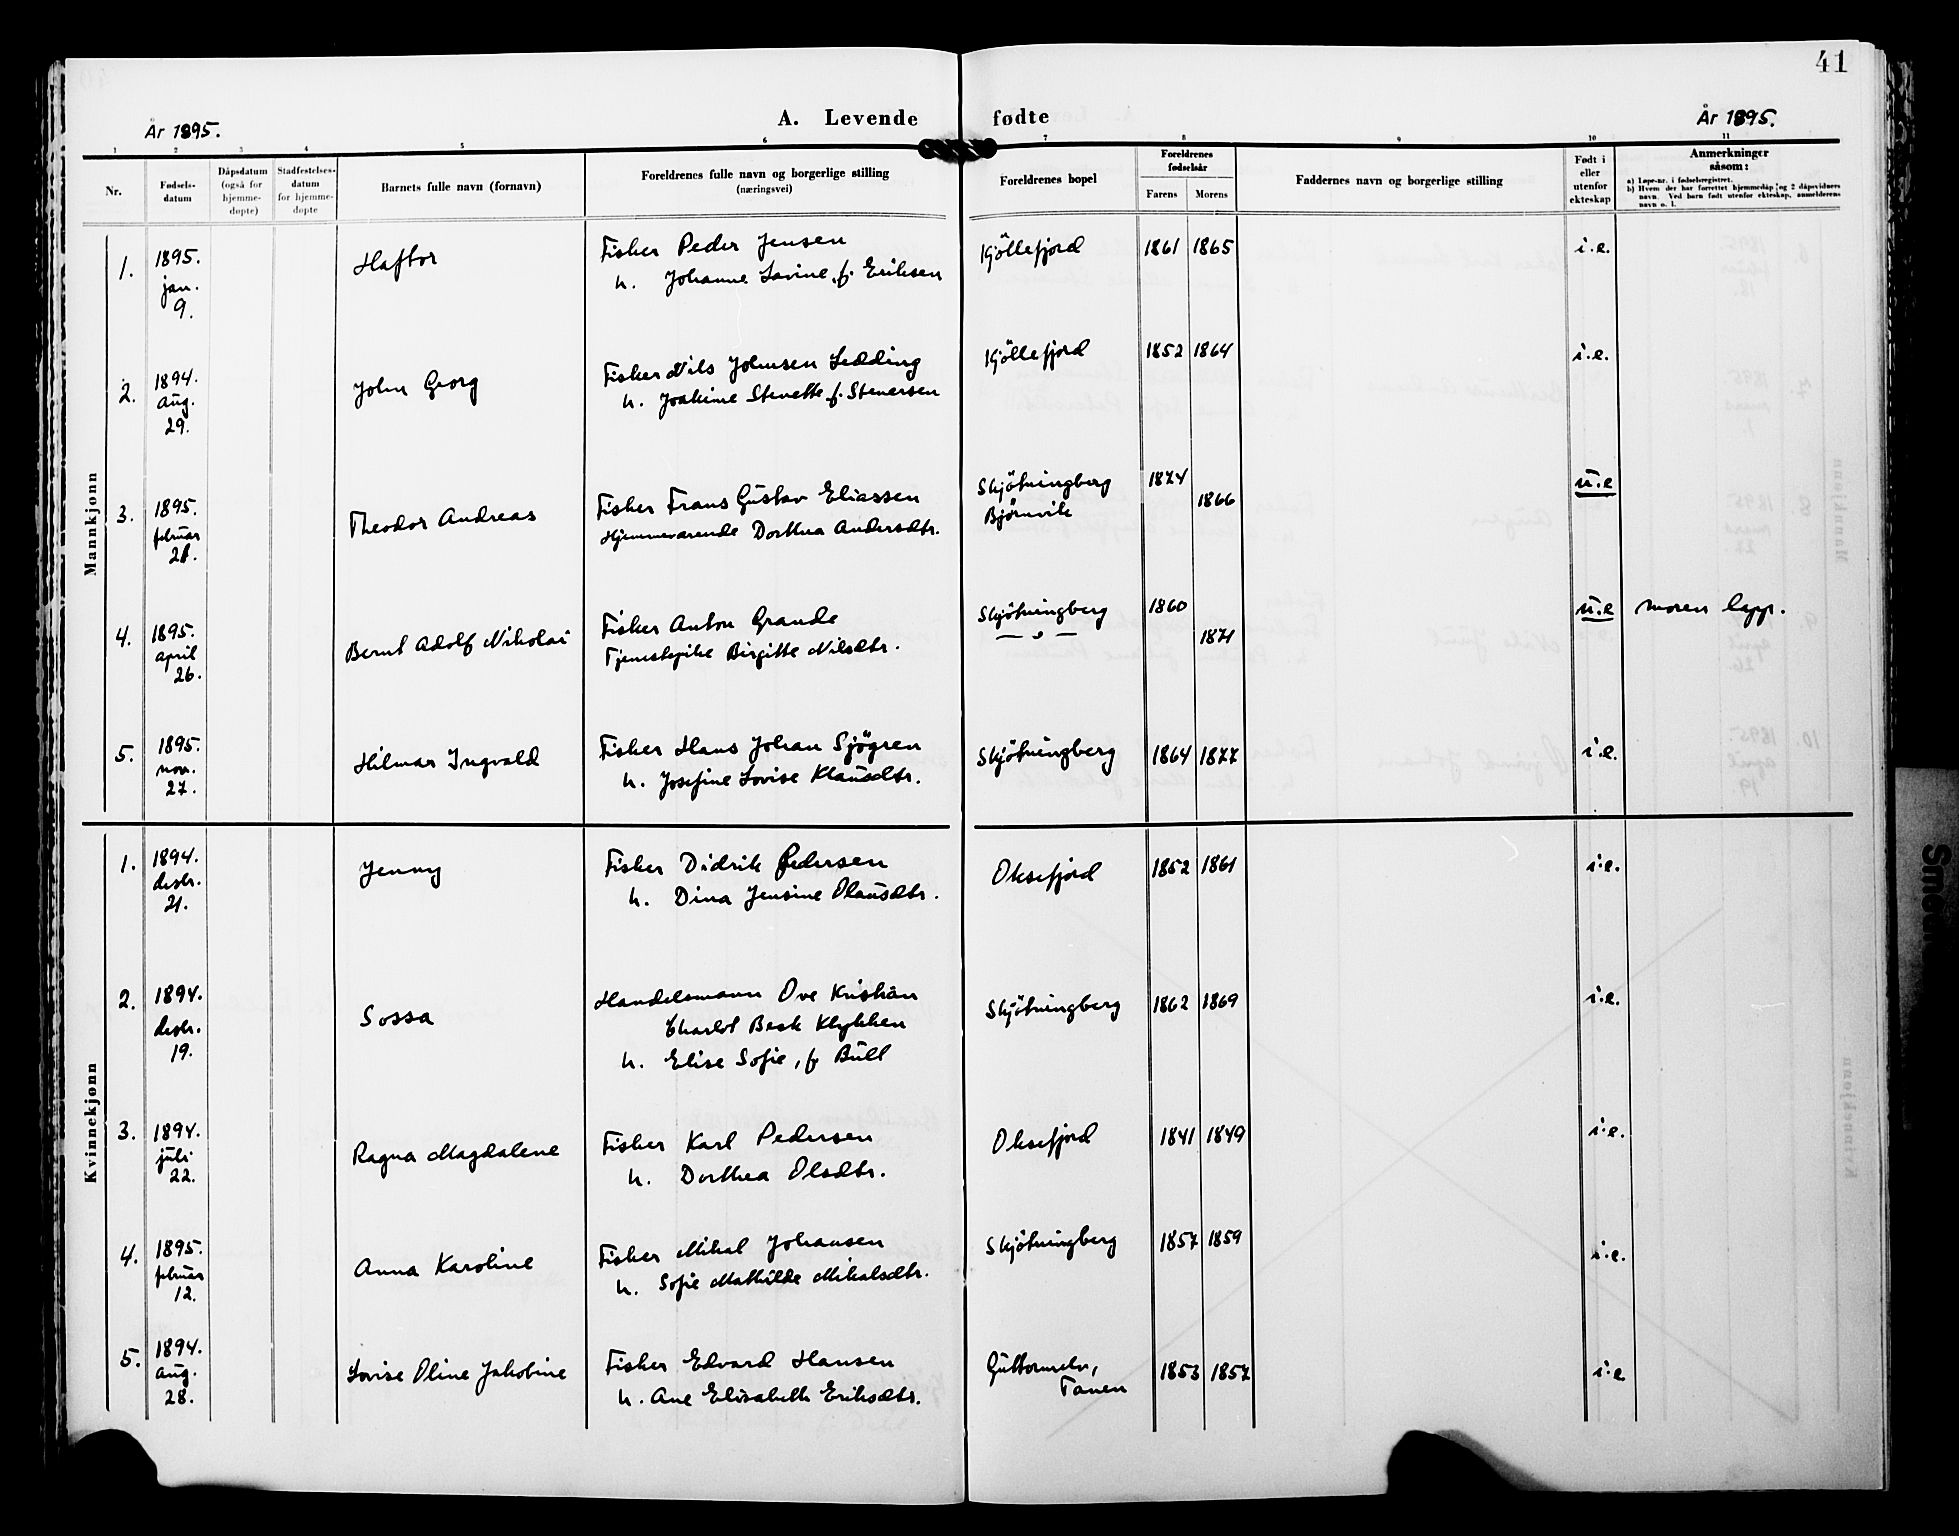 41
År 1895.
A. Levende fødte
År 1895.
1 2 3 4 5 6 7 8 9 10 11
Nr.
Fødsels-
datum
Dåpsdatum
(også for
hjemme-
døpte)
Stadfestelses-
datum
for hjemme-
døpte
Barnets fulle navn (fornavn)
Foreldrenes fulle navn og borgerlige stilling
(næringsvei)
Foreldrenes bopel
Foreldrenes
fødselsår
Farens Morens
Faddernes navn og borgerlige stilling
Født i
eller
utenfor
ekteskap
Anmerkninger
såsom:
a) Løpe-nr. i fødselsregistret.
b) Hvem der har forrettet hjemmedåp og 2 dåpsvidners
navn. Ved barn født utenfor ekteskap, anmelderens
navn o. l.
Mannkjønn
1. 1895. Haftor Fisker Peder Jensen Kjöllefjord 1861 1865 i.e.
jan. h. Johanne Lavine, f. Eriksen
9.
2. 1894. John Georg Fisker Nils Johnsen Ledding Kjöllefjord 1852 1864 i.e.
aug. h. Joakime Stenette f. Stenersen
29.
3. 1895. Theodor Andreas Fisker Frans Gustav Eliassen Skjötningberg 1874 u.e
februar Hjemmeværende Dorthea Andersdtr. Bjørnvik 1866
21.
4. 1895. Bernt Adolf Nikolai Fisker Anton Grande Skjötningberg 1860 u.e moren lapp.
april Tjenestepike Birgitte Nilsdtr. — „ — 1871
26.
5. 1895. Hilmar Ingvald Fisker Hans Johan Sjögren Skjötningberg 1864 1877 i.e.
nov. h. Josefine Lovise Klausdtr.
27.
Kvinnekjønn
1. 1894. Jenny Fisker Didrik Pedersen Oksefjord 1852 1861 i.e.
desbr. h. Dina Jensine Olausdtr.
21.
2. 1894. Sossa Handelsmann Ove Kristian Skjötningberg 1862 1869 i.e.
desbr. Charlot Besk Klykken
19. h. Elise Sofie, f. Bull
3. 1894. Ragna Magdalene Fisker Karl Pedersen Oksefjord 1841 1849 i.e.
juli h. Dorthea Olsdtr.
22.
4. 1895. Anna Karoline Fisker Mikal Johansen Skjötningberg 1857 1859 i.e.
februar h. Sofie Mathilde Mikalsdtr.
12.
5. 1894. Lovise Oline Jakobine Fisker Edvard Hansen Guttormelv, 1853 1857 i.e
aug. h. Ane Elisabeth Eriksdtr. Tanen
28.